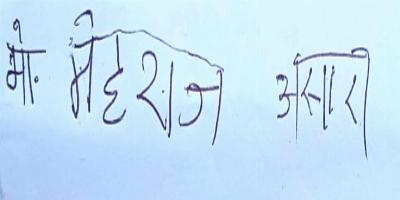 मो. मेहराज असारी